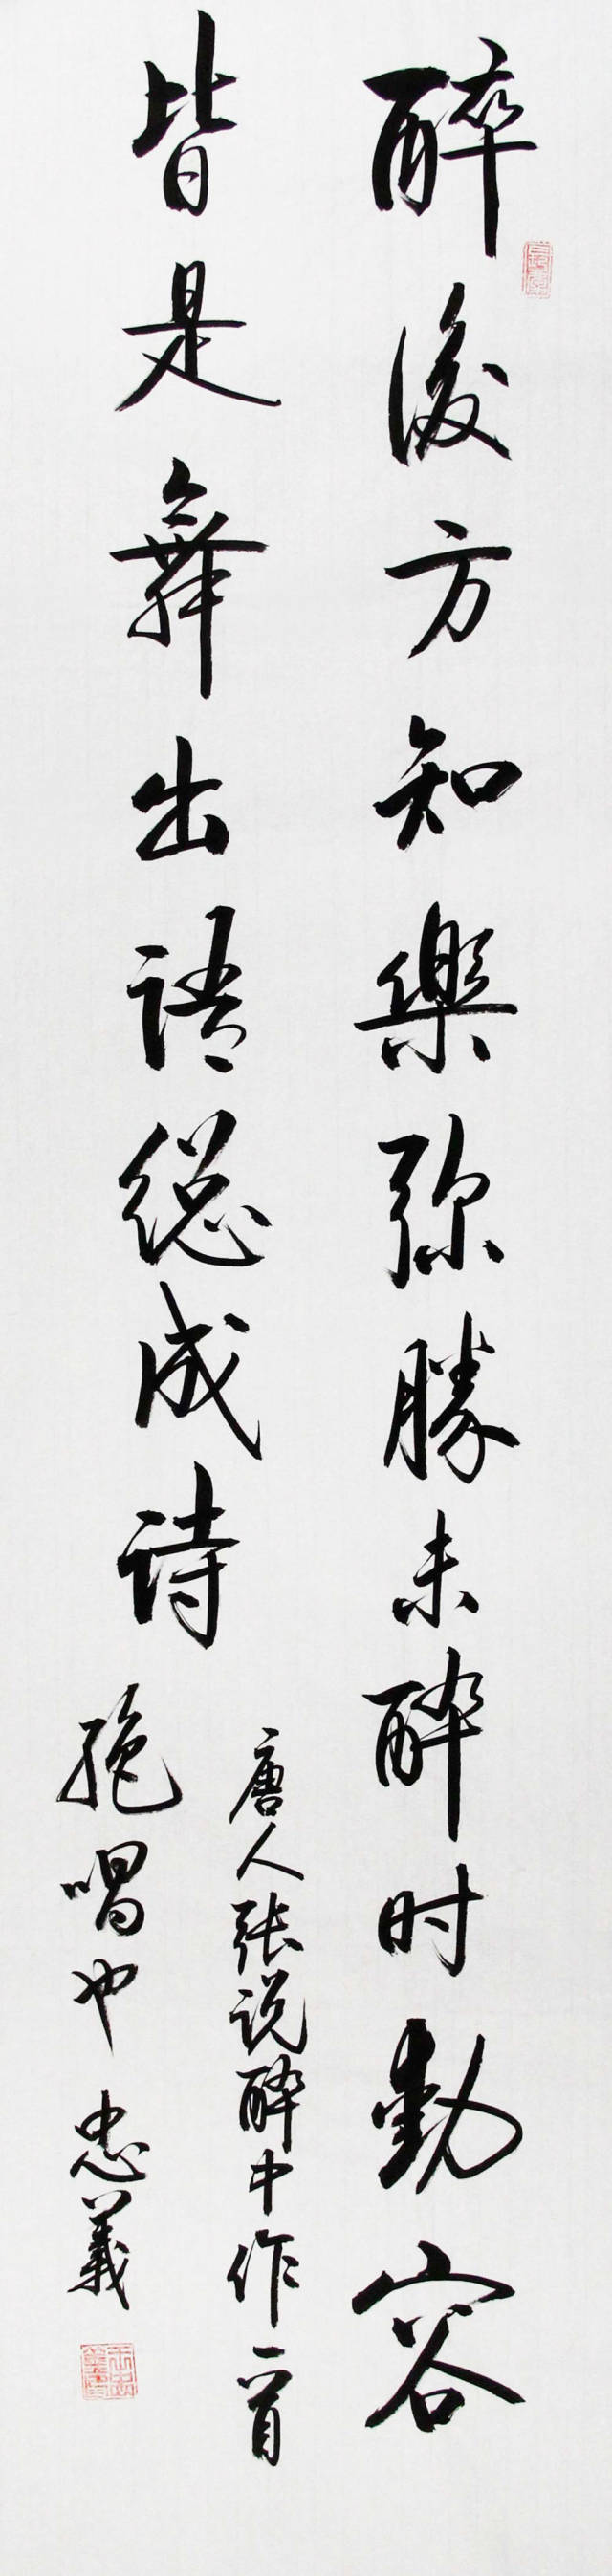 醉後方知樂弥勝未醉时動容
皆是舞出語總成诗
唐人张说醉中作一首
絶唱也 忠義